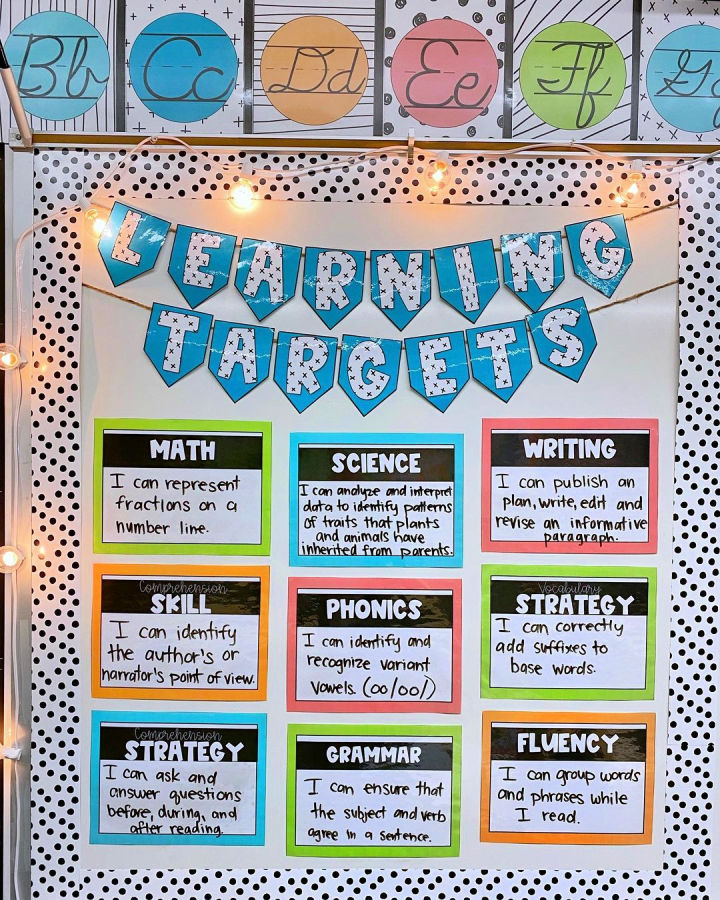 Bb Cc Dd Ee Ff Gg
LEARNING
TARGETS
MATH
I can represent
fractions on a
number line.
SCIENCE
I can analyze and interpret
data to identify patterns
of traits that plants
and animals have
inherited from parents.
WRITING
I can publish an
plan, write, edit and
revise an informative
paragraph.
Comprehension
SKILL
I can identify
the author's or
narrator's point of view.
PHONICS
I can identify and
recognize variant
vowels. (oo/oo/)
Vocabulary
STRATEGY
I can correctly
add suffixes to
base words.
Comprehension
STRATEGY
I can ask and
answer questions
before, during, and
after reading.
GRAMMAR
I can ensure that
the subject and verb
agree in a sentence.
FLUENCY
I can group words
and phrases while
I read.